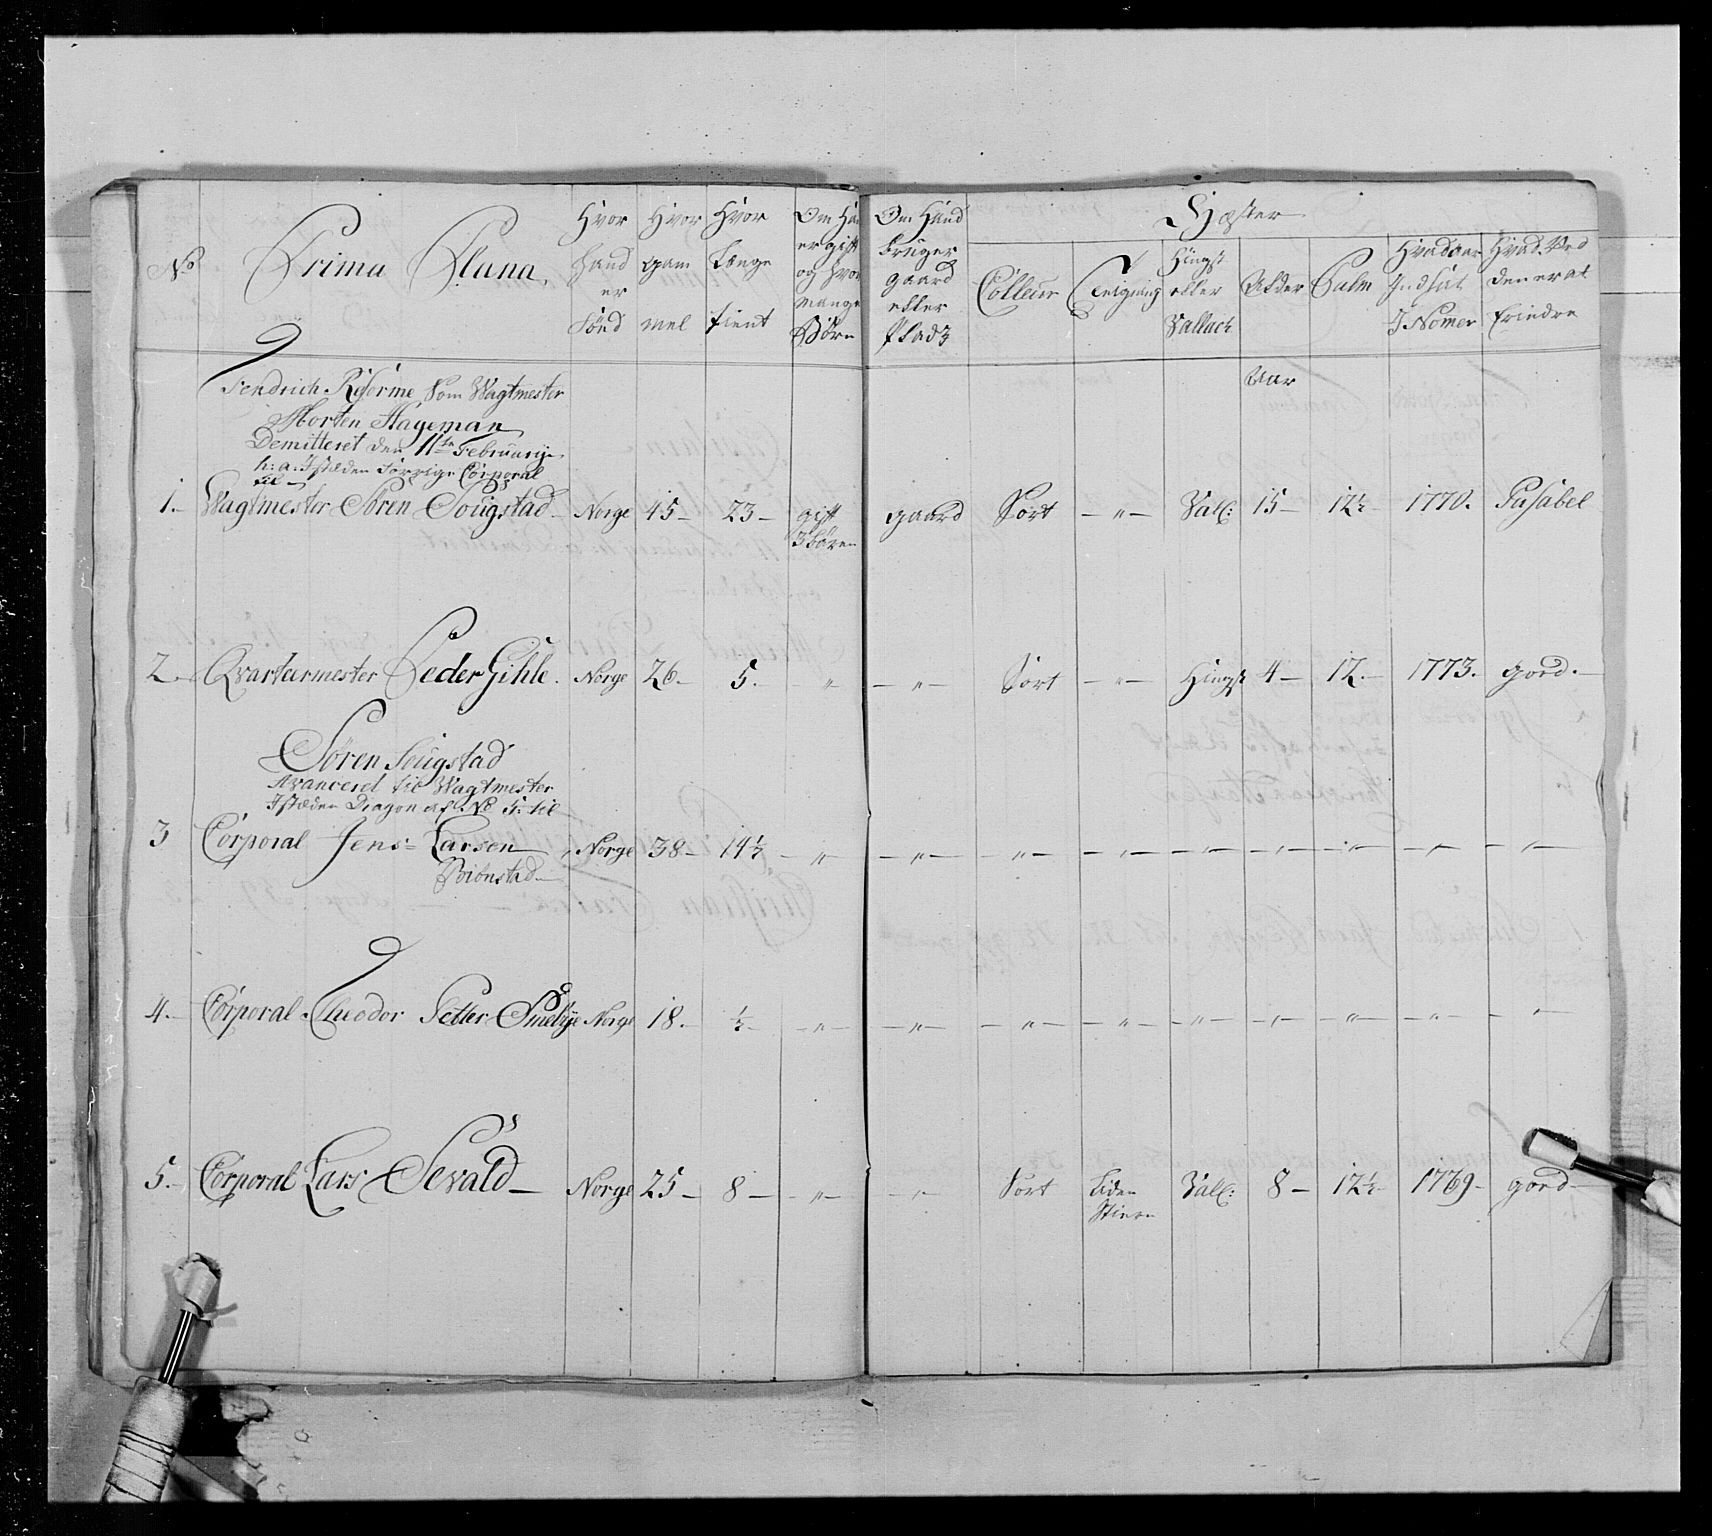 No Prima Plana. Hvor hand er Fönd Hvor gam mel Hvor længe tient Om Ha er gift og hvor mange Börn Om Hand bruger gaard eller Plads
Hæster
Cölleur Teigning Hingst eller Vallach Alder Palm Hvad aar Indsat I Nomer Hvad Ved den er at Erindre
Fendrich Reforme Som Wagtmester
Morten Hageman
Demitteret den 11te Februarij
h: a: Istæden Forrige Corporal
til
Aar
1. Wagtmester Sören Soügstad Norge 45 23 gift 3 börn gaard Sort — " — Val: 15 12½ 1770. Pasabel
2. Qvarteermester Peder Gihle. Norge 26. 5. " — " — Sort — " — Hingst 4 12. 1773. god.
Sören Soügstad
Avanceret til Wagtmester
Istæden Dragon af No 5. til
3 Corporal Jens Larsen Norge 38 14½ — " — " — " — " — " — " — " — " — "
Biönstad
4. Corporal Theodor Petter Smebÿe Norge 18. ½ — " — " — " — " — " — " — " — " — "
5. Corporal Lars Sevald Norge 25 8 — " — " — Sort liden Stiern Val: 8 12½ 1769 god